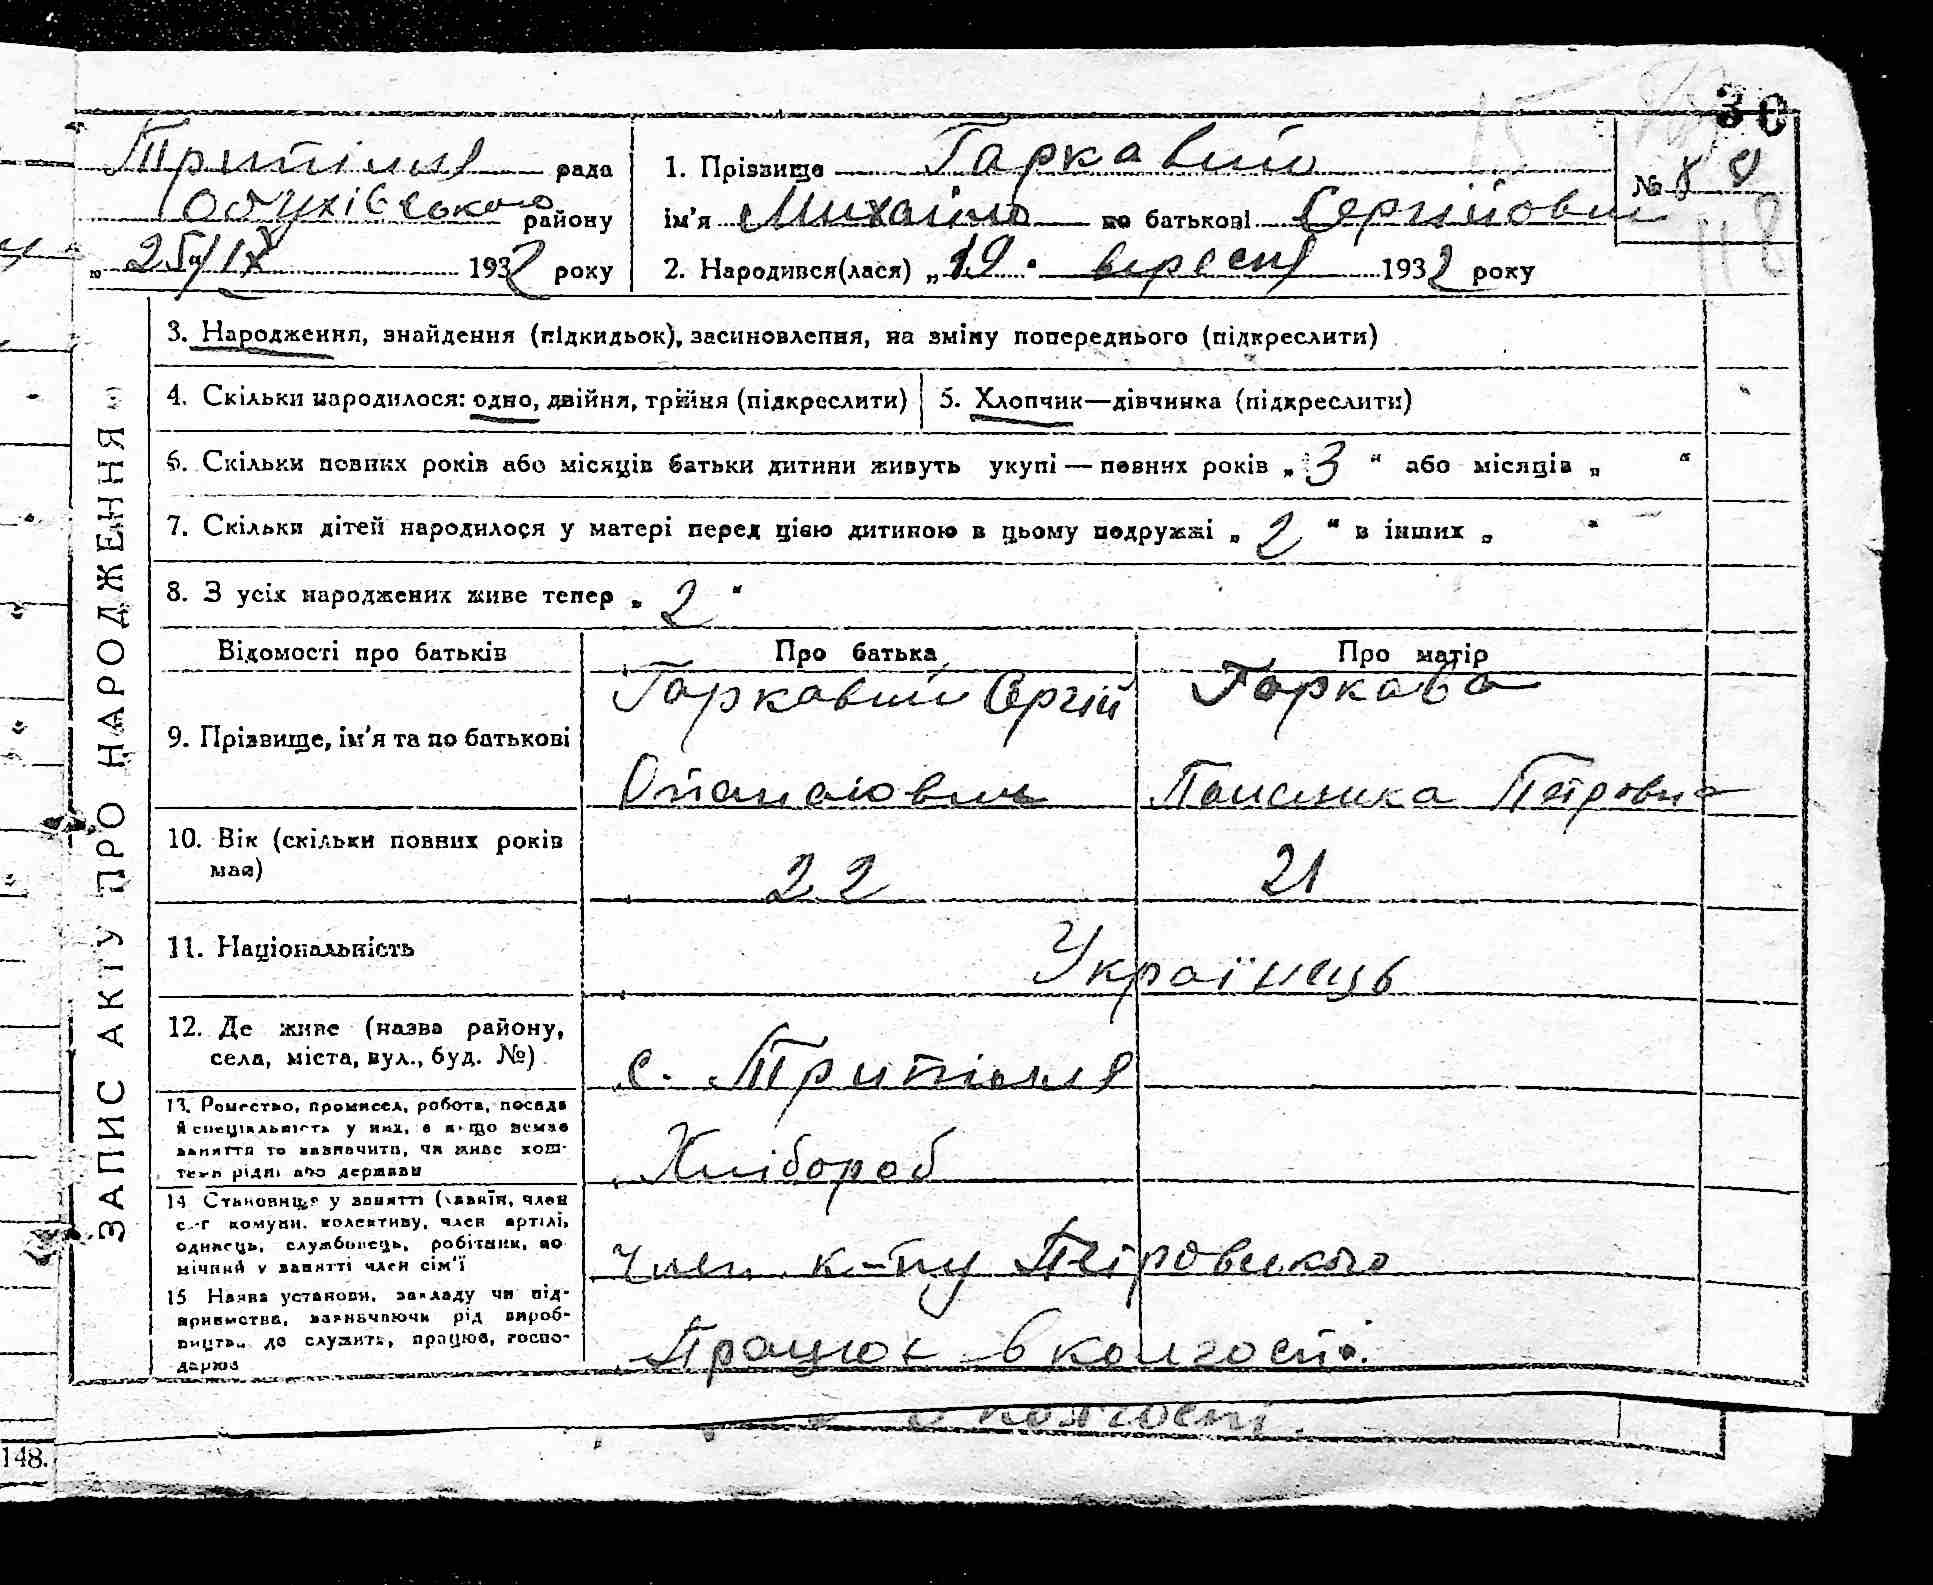 30
Трипілля рада
Обухівського району
„ 25/IX 1932 року
1. Прізвище Гаркавий
ім'я Михайло по батькові Сергійович
2. Народився(лася) „19" вересня 1932 року
№
118
ЗАПИС АКТУ ПРО НАРОДЖЕННЯ
3. Народження, знайдення (підкидьок), засиновлення, на зміну попереднього (підкреслити)
4. Скільки народилося: одно, двійня, трійня (підкреслити)
5. Хлопчик—дівчинка (підкреслити)
6. Скільки повних років або місяців батьки дитини живуть укупі — повних років „ 3 “ або місяців „ “
7. Скільки дітей народилося у матері перед цією дитиною в цьому подружжі „ 2 “ в інших „ “
8. З усіх народжених живе тепер „ 2 “
Відомості про батьків Про батька Про матір
9. Прізвище, ім'я та по батькові
Гаркавий Сергій
Опанасович
Гаркава
Петровна
10. Вік (скільки повних років
має)
22
21
11. Національність
Українець
12. Де живе (назва району,
села, міста, вул., буд. №)
с. Трипілля
13. Ремество, промисел, робота, посада
й спеціяльність у них, а якщо немає
заняття то зазначити, чи живе кош-
том рідні або держави
Хлібороб
14 Становище у занятті (хазяїн, член
с.-г комуни, колективу, член артілі,
одинець, службовець, робітник, по
мічний у занятті член сім'ї
Член к-пу Петровського
15 Назва установи, закладу чи під-
приємства, зазначаючи рід вироб-
ництва, де служить, працює, госпо-
дарює
Працює в колгоспі.
148.